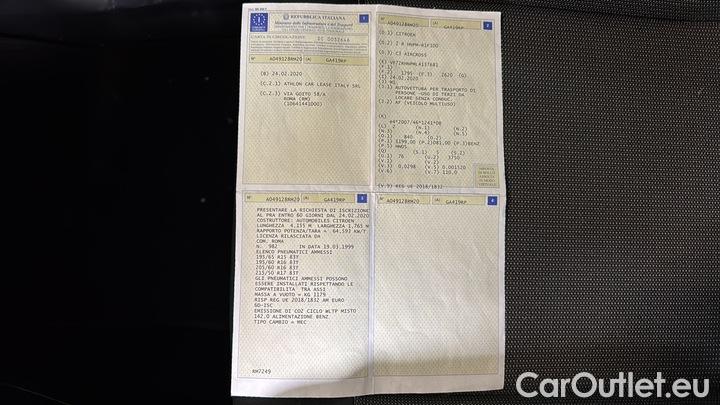 REPUBBLICA ITALIANA
1
Ministero delle Infrastrutture e dei Trasporti
CARTA DI CIRCOLAZIONE
N° A049128RM20 (A) GA419RP
(B) 24.02.2020
(C.2.1) ATHLON CAR LEASE ITALY SRL
(C.2.3) VIA GOITO 58/A
ROMA (RM)
(10641441000)
N° A049128RM20 (A) GA419RP
2
(D.1) CITROEN
(D.3) C3 AIRCROSS
(F.1)
(F.2) 1795 (F.3) 2620 (G)
(I) 24.02.2020
(J) M1
(J.1) AUTOVETTURA PER TRASPORTO DI
PERSONE -USO DI TERZI DA
LOCARE SENZA CONDUC.
(J.2) AF (VEICOLO MULTIUSO)
(K)
e4*2007/46*1241*08
(L) 2 (N.1) (N.2)
(N.3) (N.4) (N.5)
(O.1) 840 (O.2)
(P.1) 1199,00 (P.2)081,00 (P.3)BENZ
(P.5) HN05
(Q) (S.1) 5 (S.2)
(U.1) 76 (U.2) 3750
(V.1) (V.2)
(V.3) 0,0298 (V.5) 0.001520
(V.6) (V.7) 110.0
(V.9) REG UE 2018/1832
IMPOSTA
DI BOLLO
ASSOLTA
IN MODO
VIRTUALE
N° A049128RM20 (A) GA419RP
3
PRESENTARE LA RICHIESTA DI ISCRIZIONE
AL PRA ENTRO 60 GIORNI DAL 24.02.2020
COSTRUTTORE: AUTOMOBILES CITROEN
LUNGHEZZA 4,155 M LARGHEZZA 1,765 M
RAPPORTO POTENZA/TARA = 64,593 KW/T
LICENZA RILASCIATA DA
COM. ROMA
N. 982 IN DATA 19.03.1999
ELENCO PNEUMATICI AMMESSI
195/65 R15 83Y
195/60 R16 83Y
205/60 R16 83Y
215/50 R17 83Y
GLI PNEUMATICI AMMESSI POSSONO
ESSERE INSTALLATI RISPETTANDO LE
COMPATIBILITA TRA ASSI
MASSA A VUOTO = KG 1179
RISP REG UE 2018/1832 AM EURO
6D-ISC
EMISSIONE DI CO2 CICLO WLTP MISTO
142.0 ALIMENTAZIONE BENZ
TIPO CAMBIO = MEC
RM7249
N° A049128RM20 (A) GA419RP
4
CarOutlet.eu